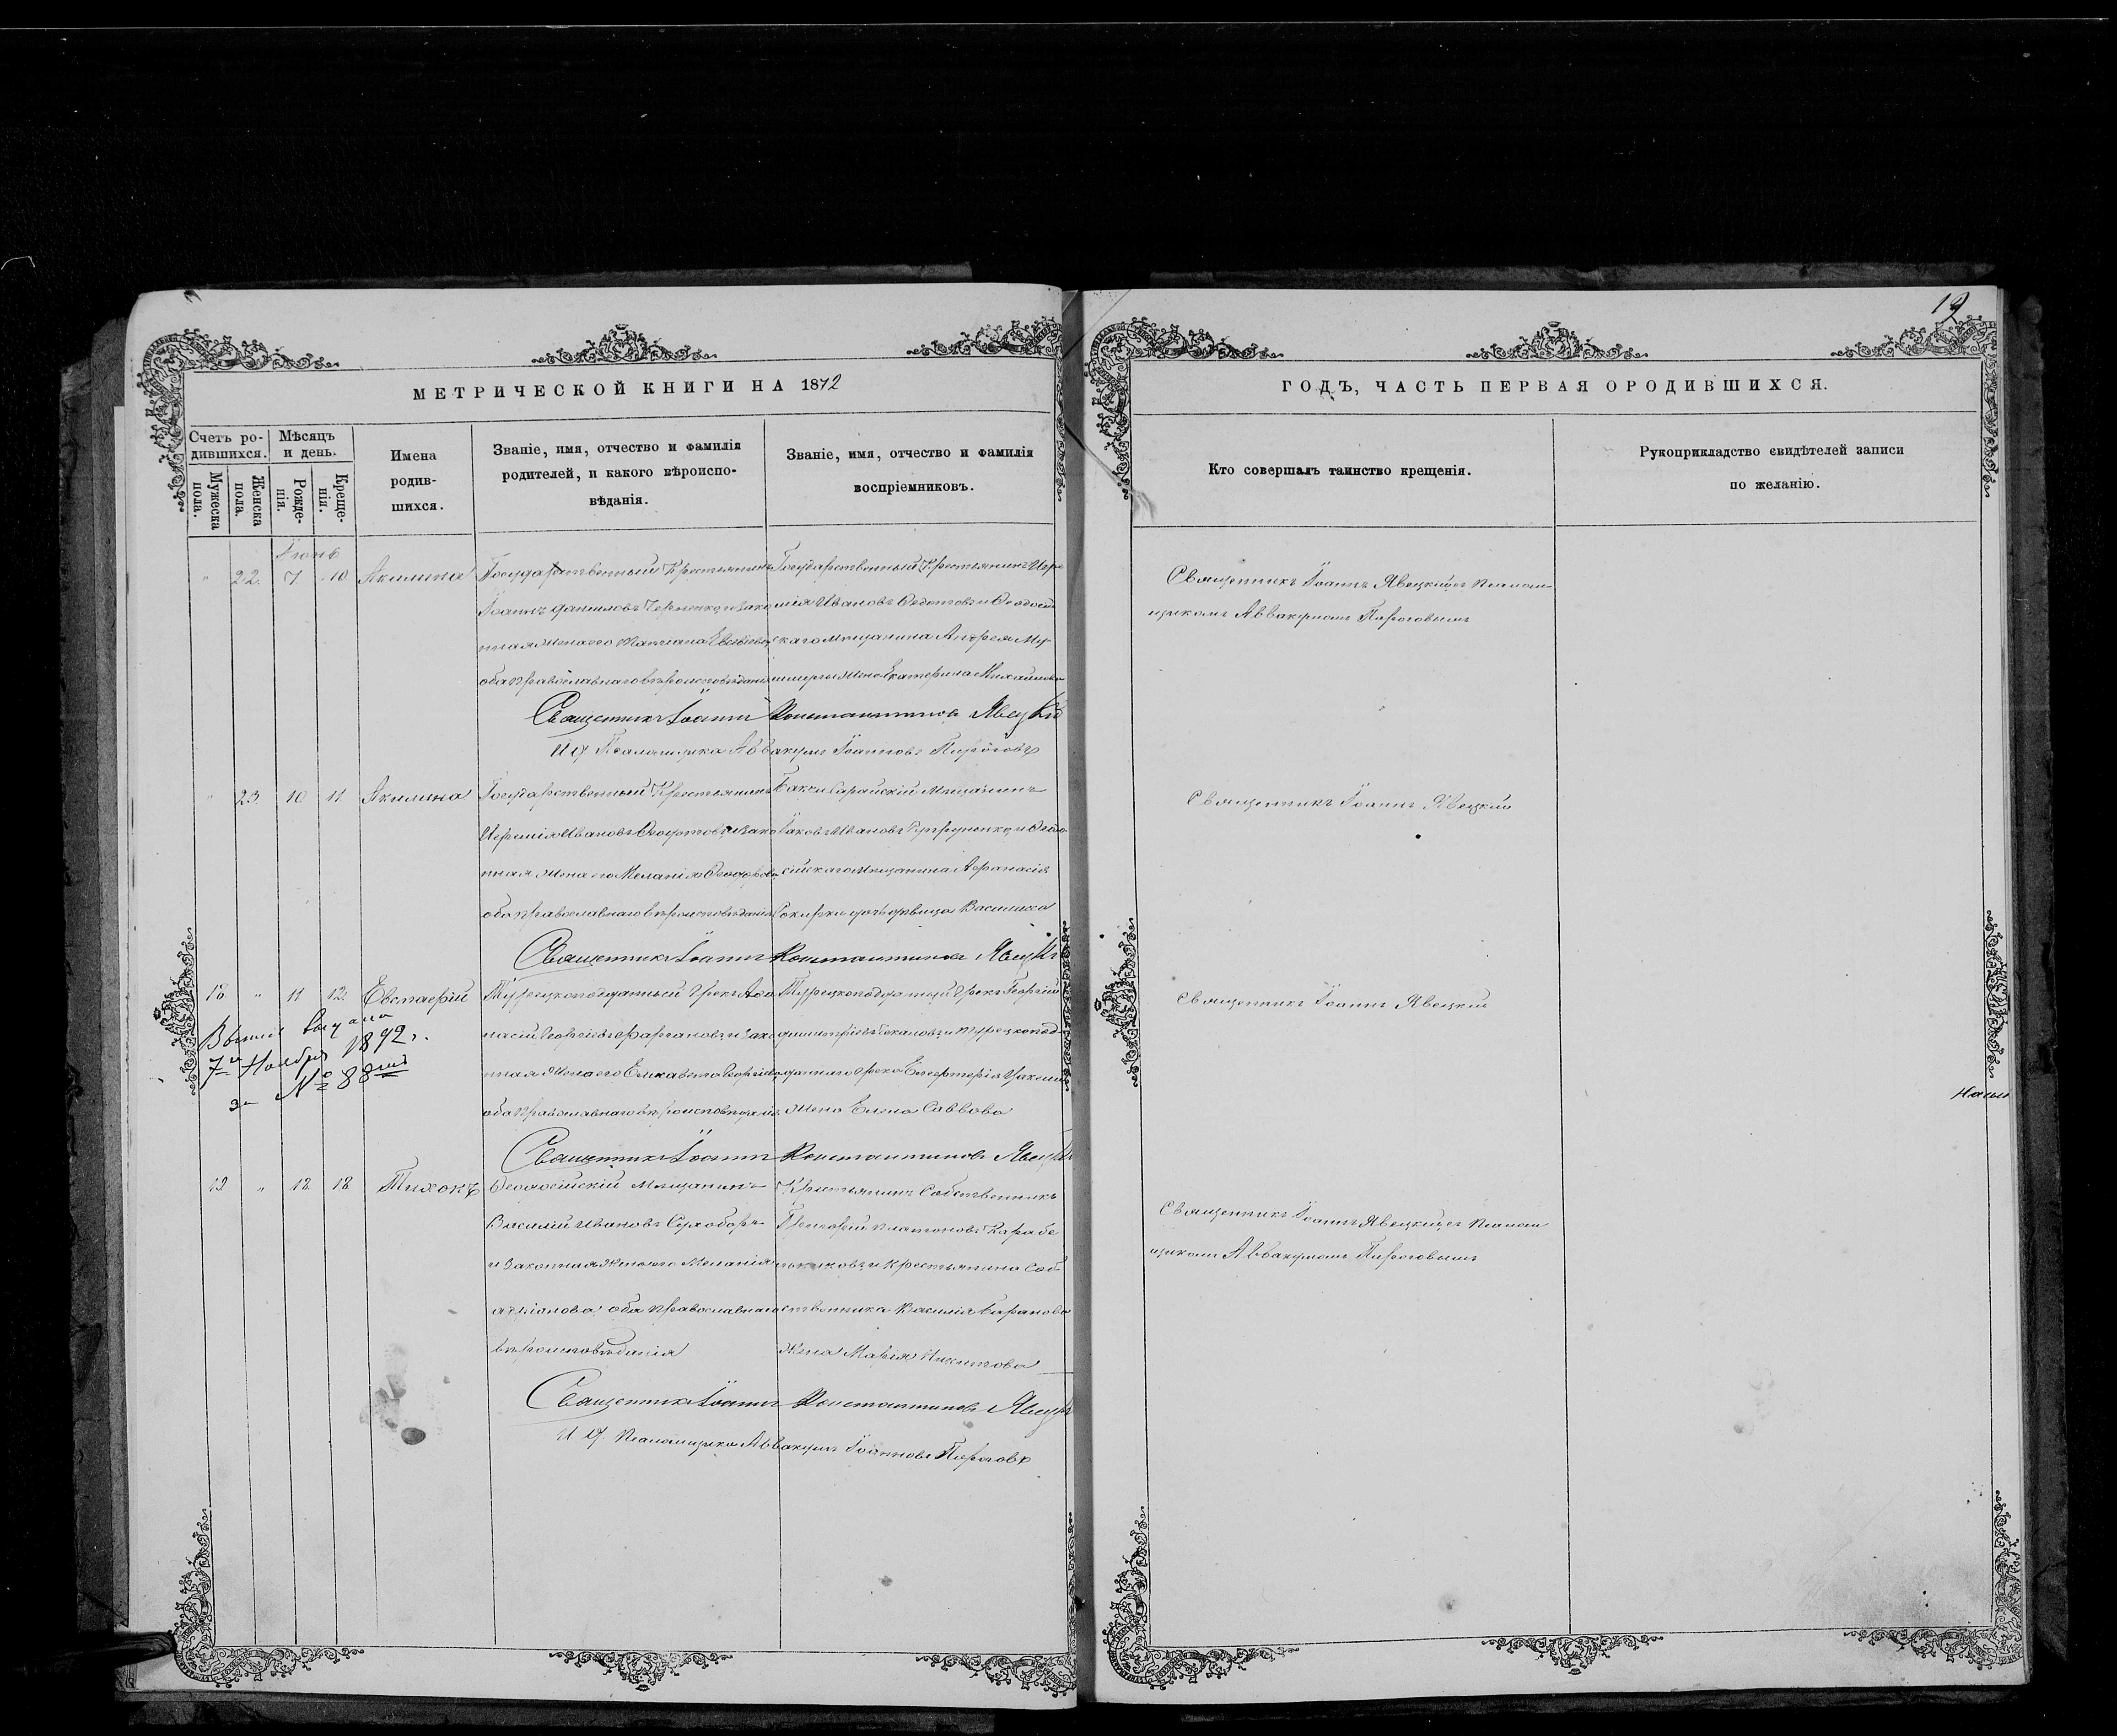 12
МЕТРИЧЕСКОЙ КНИГИ НА 1872
ГОДЪ, ЧАСТЬ ПЕРВАЯ О РОДИВШИХСЯ.
Счетъ ро-
дившихся.
Мѣсяцъ
и день.
Мужеска
пола.
Женска
пола.
Рожде-
нія.
Креще-
нія.
Имена
родив-
шихся.
Званіе, имя, отчество и фамилія
родителей, и какого вѣроиспо-
вѣданія.
Званіе, имя, отчество и фамилія
воспріемниковъ.
Кто совершалъ таинство крещенія.
Рукоприкладство свидѣтелей записи
по желанію.
Іюнь
" 22 7 10 Акилина
Государственный Крестьянинъ
Іоаннъ Даниловъ и зако
нная жена его Татіана
оба православнаго вѣроисповѣданія
Государственный Крестьянинъ
Ивановъ Федотовъ и Феодосій
скаго мѣщанина Андрея
жена Екатерина Михайлова
Священникъ Іоаннъ Явецкій съ псалом
щикомъ Аввакумомъ Пироговымъ
Священникъ Іоаннъ Константиновъ Явецкій
И д Псаломщика Аввакумъ Іоанновъ Пироговъ
" 23 10 11 Акилина
Государственный Крестьянинъ
Іеремія Ивановъ Федотовъ и зако
нная жена его Меланія
оба православнаго вѣроисповѣданія
Бакчи Сарайскій Мѣщанинъ
Іаковъ Ивановъ и Феодо
сійскаго мѣщанина Афанасія
дочь дѣвица Василиса
Священникъ Іоаннъ Явецкій
Священникъ Іоаннъ Константиновъ
18 " 11 12 Евстафій
Турецкоподданный Грекъ Афа
насій Георгіевъ и зако
нная жена его Елисавета
оба православнаго вѣроисповѣданія
Турецкоподданный Грекъ Георгій
Димитріевъ и турецкопод
даннаго грека Елефтерія
жена Елена Саввова
Священникъ Іоаннъ Явецкій
выдана
7го Ноября 1892 г.
за № 88
Священникъ Іоаннъ Константиновъ
19 " 12 18 Тихонъ
Феодосійскій Мѣщанинъ
Василій Ивановъ Сухоборъ
и законная жена его Меланія
оба православнаго
вѣроисповѣданія
Крестьянинъ Собственникъ
Григорій Платоновъ Карабе
и Крестьянина Соб
ственника Василія Баранова
жена Марія Никитова
Священникъ Іоаннъ Явецкій съ псалом
щикомъ Аввакумомъ Пироговымъ
Священникъ Іоаннъ Константиновъ
И д Псаломщика Аввакумъ Іоанновъ Пироговъ